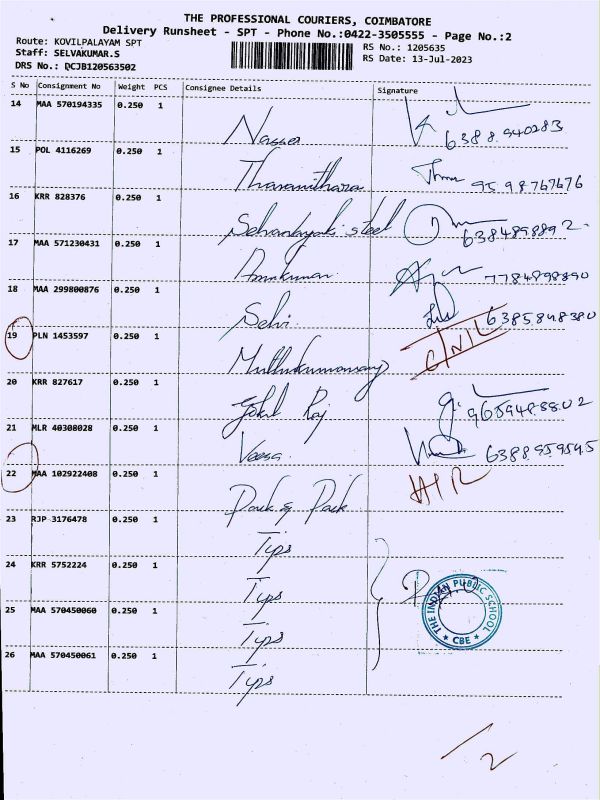 THE PROFESSIONAL COURIERS, COIMBATORE
Delivery Runsheet - SPT - Phone No.:0422-3505555 - Page No.:2
Route: KOVILPALAYAM SPT
Staff: SELVAKUMAR.S
DRS No.: DCJB120563502
RS No.: 1205635
RS Date: 13-Jul-2023
S No Consignment No Weight PCS Consignee Details Signature
14 MAA 570194335 0.250 1
Nassea 6388.940283
15 POL 4116269 0.250 1
Tharanitharan 95.98767676
16 KRR 828376 0.250 1
Selvanayaki steel 6384898892
17 MAA 571230431 0.250 1
Arunkumar 7784898890
18 MAA 299800876 0.250 1
Selvi 6385848380
19 PLN 1453597 0.250 1
Muthukumarasamy
20 KRR 827617 0.250 1
Gokul Raj 96594888.02
21 MLR 40308028 0.250 1
Veera 6388.959595
22 MAA 102922408 0.250 1
Pack & Pack
23 RJP 3176478 0.250 1
Tips
24 KRR 5752224 0.250 1
Tips
25 MAA 570450060 0.250 1
Tips
THE INDIAN PUBLIC SCHOOL
★ CBE ★
26 MAA 570450061 0.250 1
Tips
2